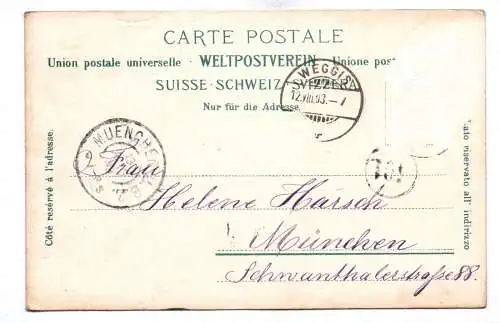 CARTE POSTALE
Union postale universelle - WELTPOSTVEREIN - Unione post
SUISSE·SCHWEIZ·SVIZZERA
Nur für die Adresse
WEGGIS
12.VIII.03. - 7
MUENCHEN
Frau
Helene Harsch
München
Schwanthalerstraße 88.
Côté reservé à l'adresse.
Lato riservato all' indirizzo